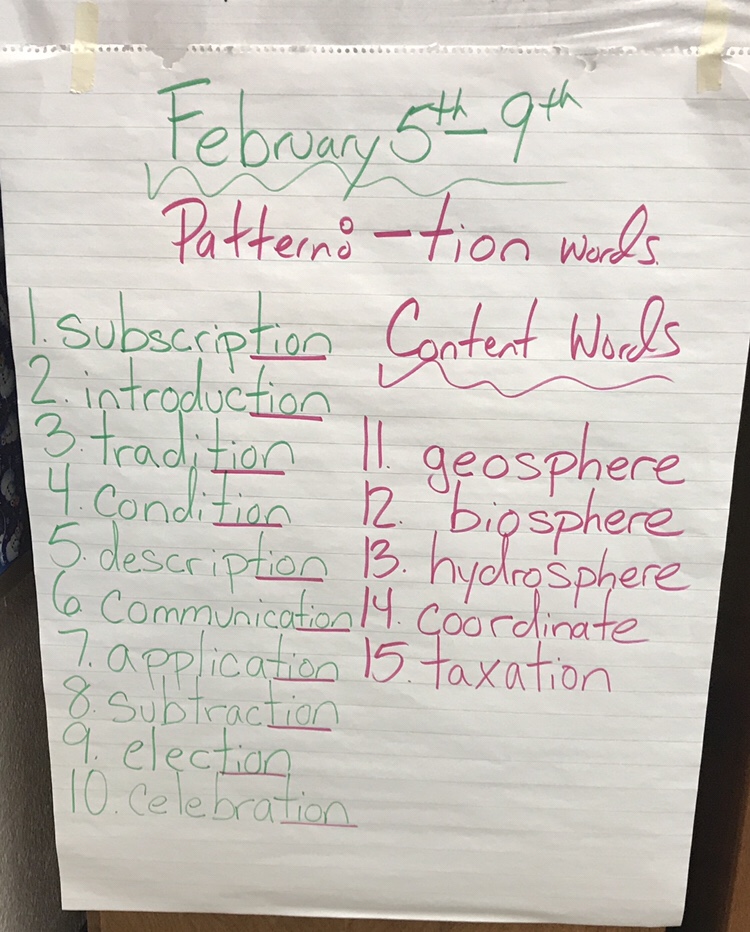 February 5th-9th
Pattern: -tion words.
1. subscription
2. introduction
3. tradition
4. Condition
5. description
6. Communication
7. application
8. Subtraction
9. election
10. Celebration
Content Words
11. geosphere
12. biosphere
13. hydrosphere
14. coordinate
15. taxation